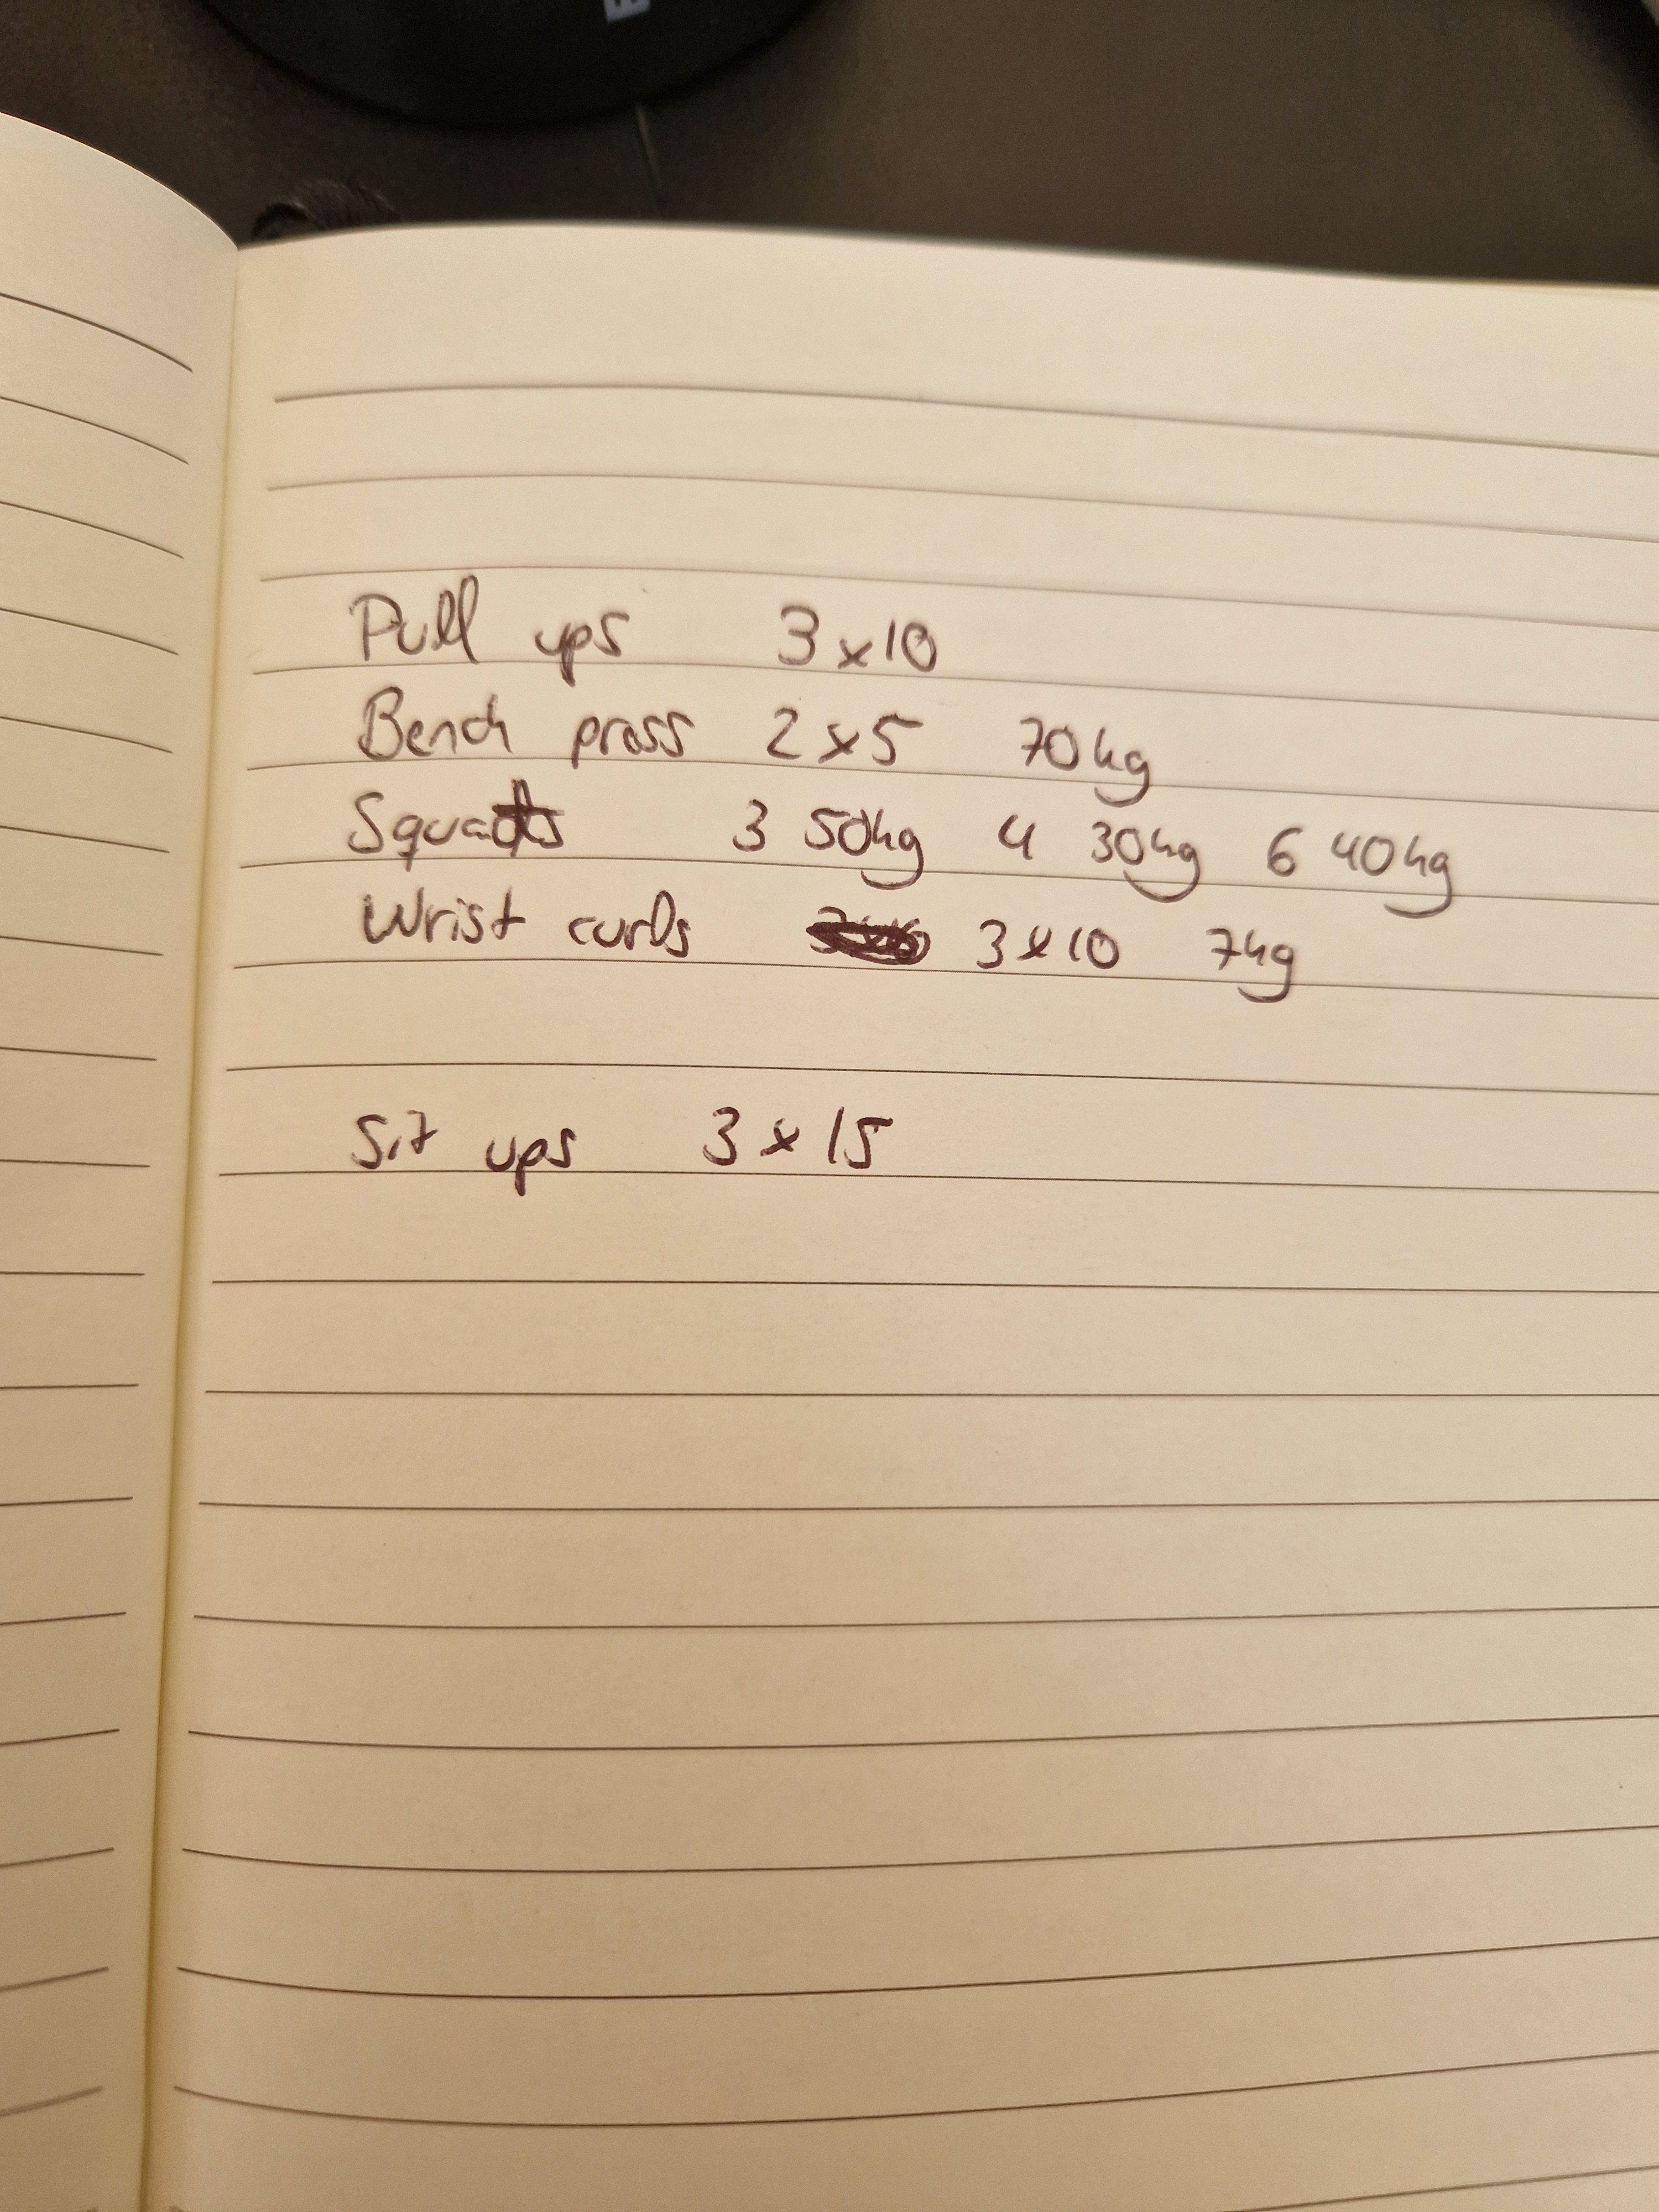 Pull ups 3x10
Bench press 2x5 70kg
Squats 3 50kg 4 30kg 6 40kg
Wrist curls 3x10 7kg
Sit ups 3x15